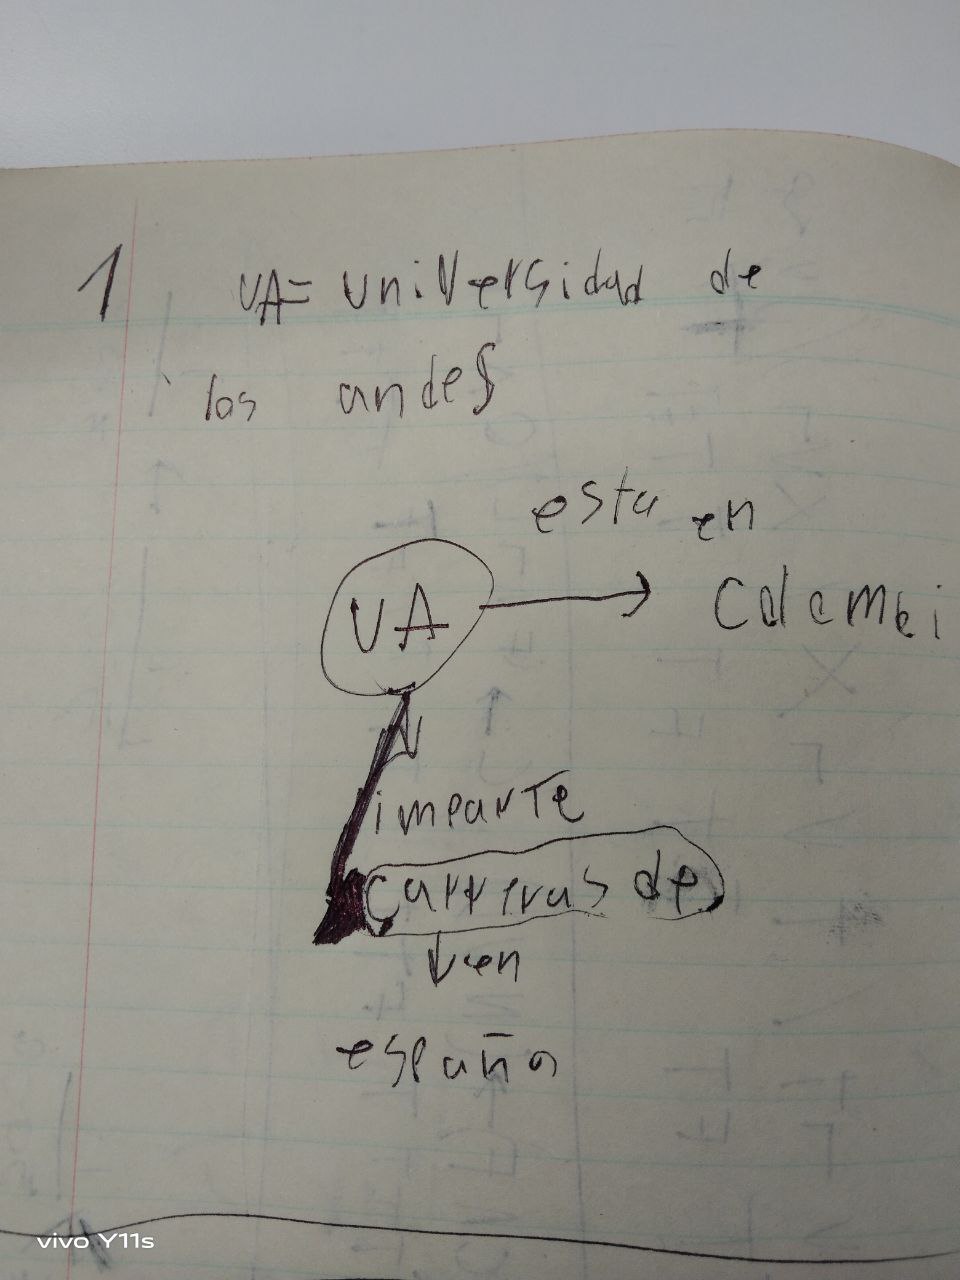 1 UA= universidad de
los andes
esta en
UA
Colombi
imparte
carreras de
en
españo
vivo Y11s